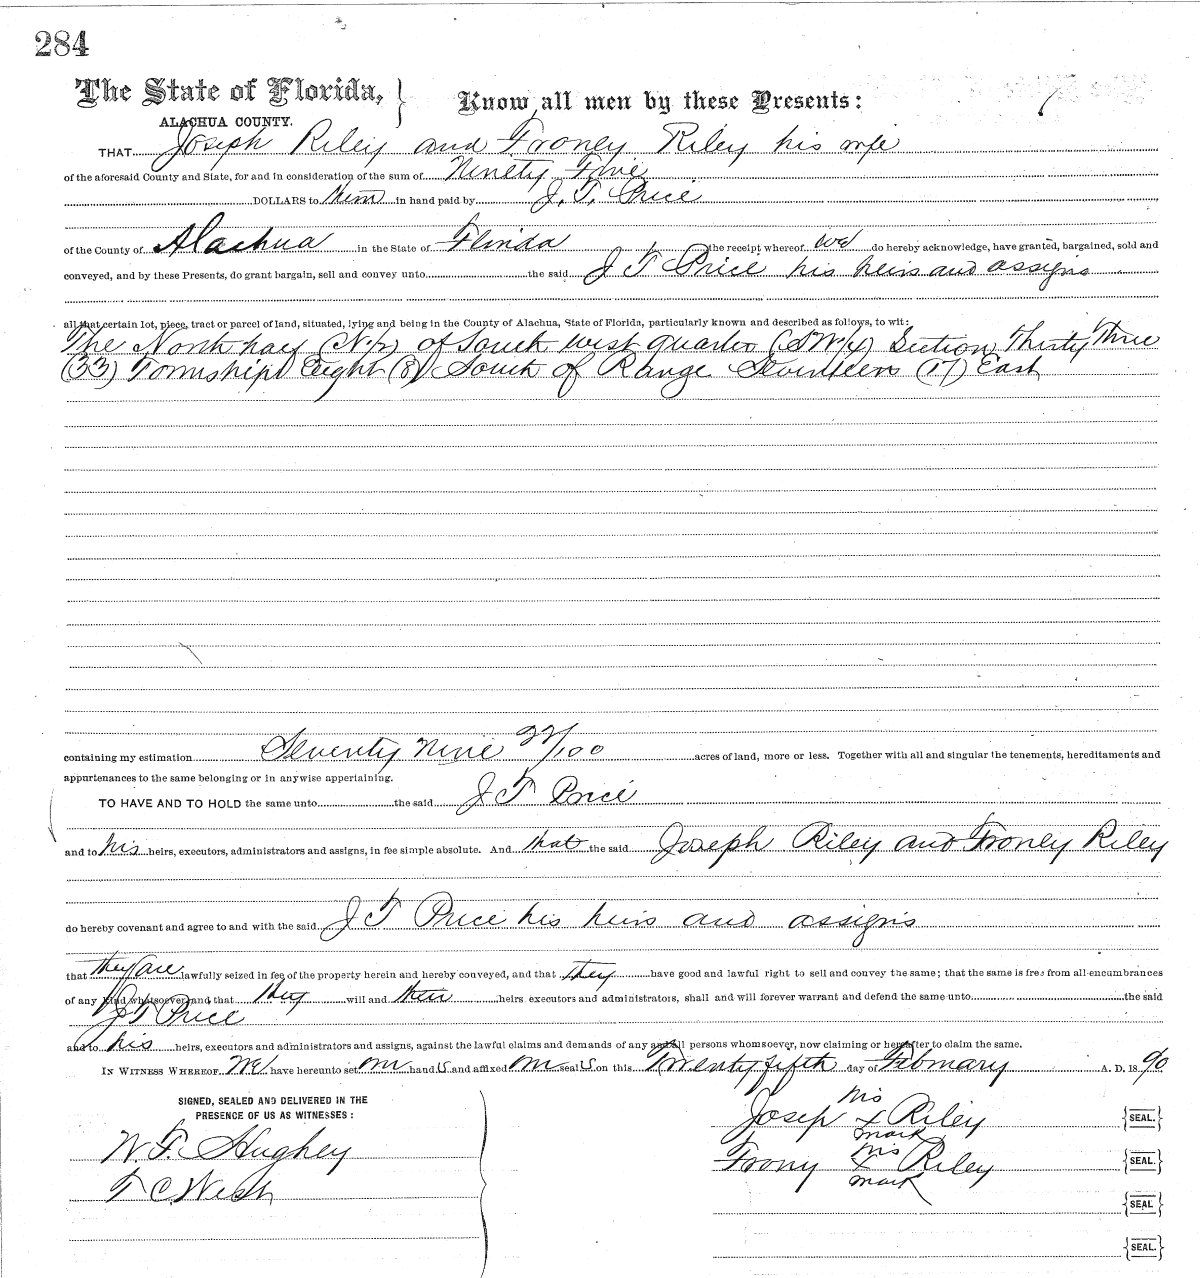 284
The State of Florida, } Know all men by these Presents:
ALACHUA COUNTY.
THAT Joseph Riley and Froney Riley his wife
of the aforesaid County and State, for and in consideration of the sum of Ninety Five
DOLLARS to them in hand paid by J. T. Price
of the County of Alachua in the State of Florida the receipt whereof we do hereby acknowledge, have granted, bargained, sold and
conveyed, and by these Presents, do grant bargain, sell and convey unto the said J T Price his heirs and assigns
all that certain lot, piece, tract or parcel of land, situated, lying and being in the County of Alachua, State of Florida, particularly known and described as follows, to wit:
The North half (N.½) of South west quarter (SW¼) Section Thirty Three
(33) Township Eight (8) South of Range Seventeen (17) East
containing my estimation Seventy Nine 22/100 acres of land, more or less. Together with all and singular the tenements, hereditaments and
appurtenances to the same belonging or in anywise appertaining.
TO HAVE AND TO HOLD the same unto the said J T Price
and to his heirs, executors, administrators and assigns, in fee simple absolute. And that the said Joseph Riley and Froney Riley
do hereby covenant and agree to and with the said J T Price his heirs and assigns
that they are lawfully seized in fee of the property herein and hereby conveyed, and that they have good and lawful right to sell and convey the same; that the same is free from all encumbrances
of any kind whatsoever, and that they will and their heirs executors and administrators, shall and will forever warrant and defend the same unto the said
J T Price
and to his heirs, executors and administrators and assigns, against the lawful claims and demands of any and all persons whomsoever, now claiming or hereafter to claim the same.
IN WITNESS WHEREOF, We have hereunto set our hands and affixed our seals on this Twenty fifth day of February A. D. 1890
SIGNED, SEALED AND DELIVERED IN THE
PRESENCE OF US AS WITNESSES:
his
Josep x Riley {SEAL.}
mark
W. F. Hughey
his
Frony x Riley {SEAL.}
mark
T C West
{SEAL}
{SEAL.}